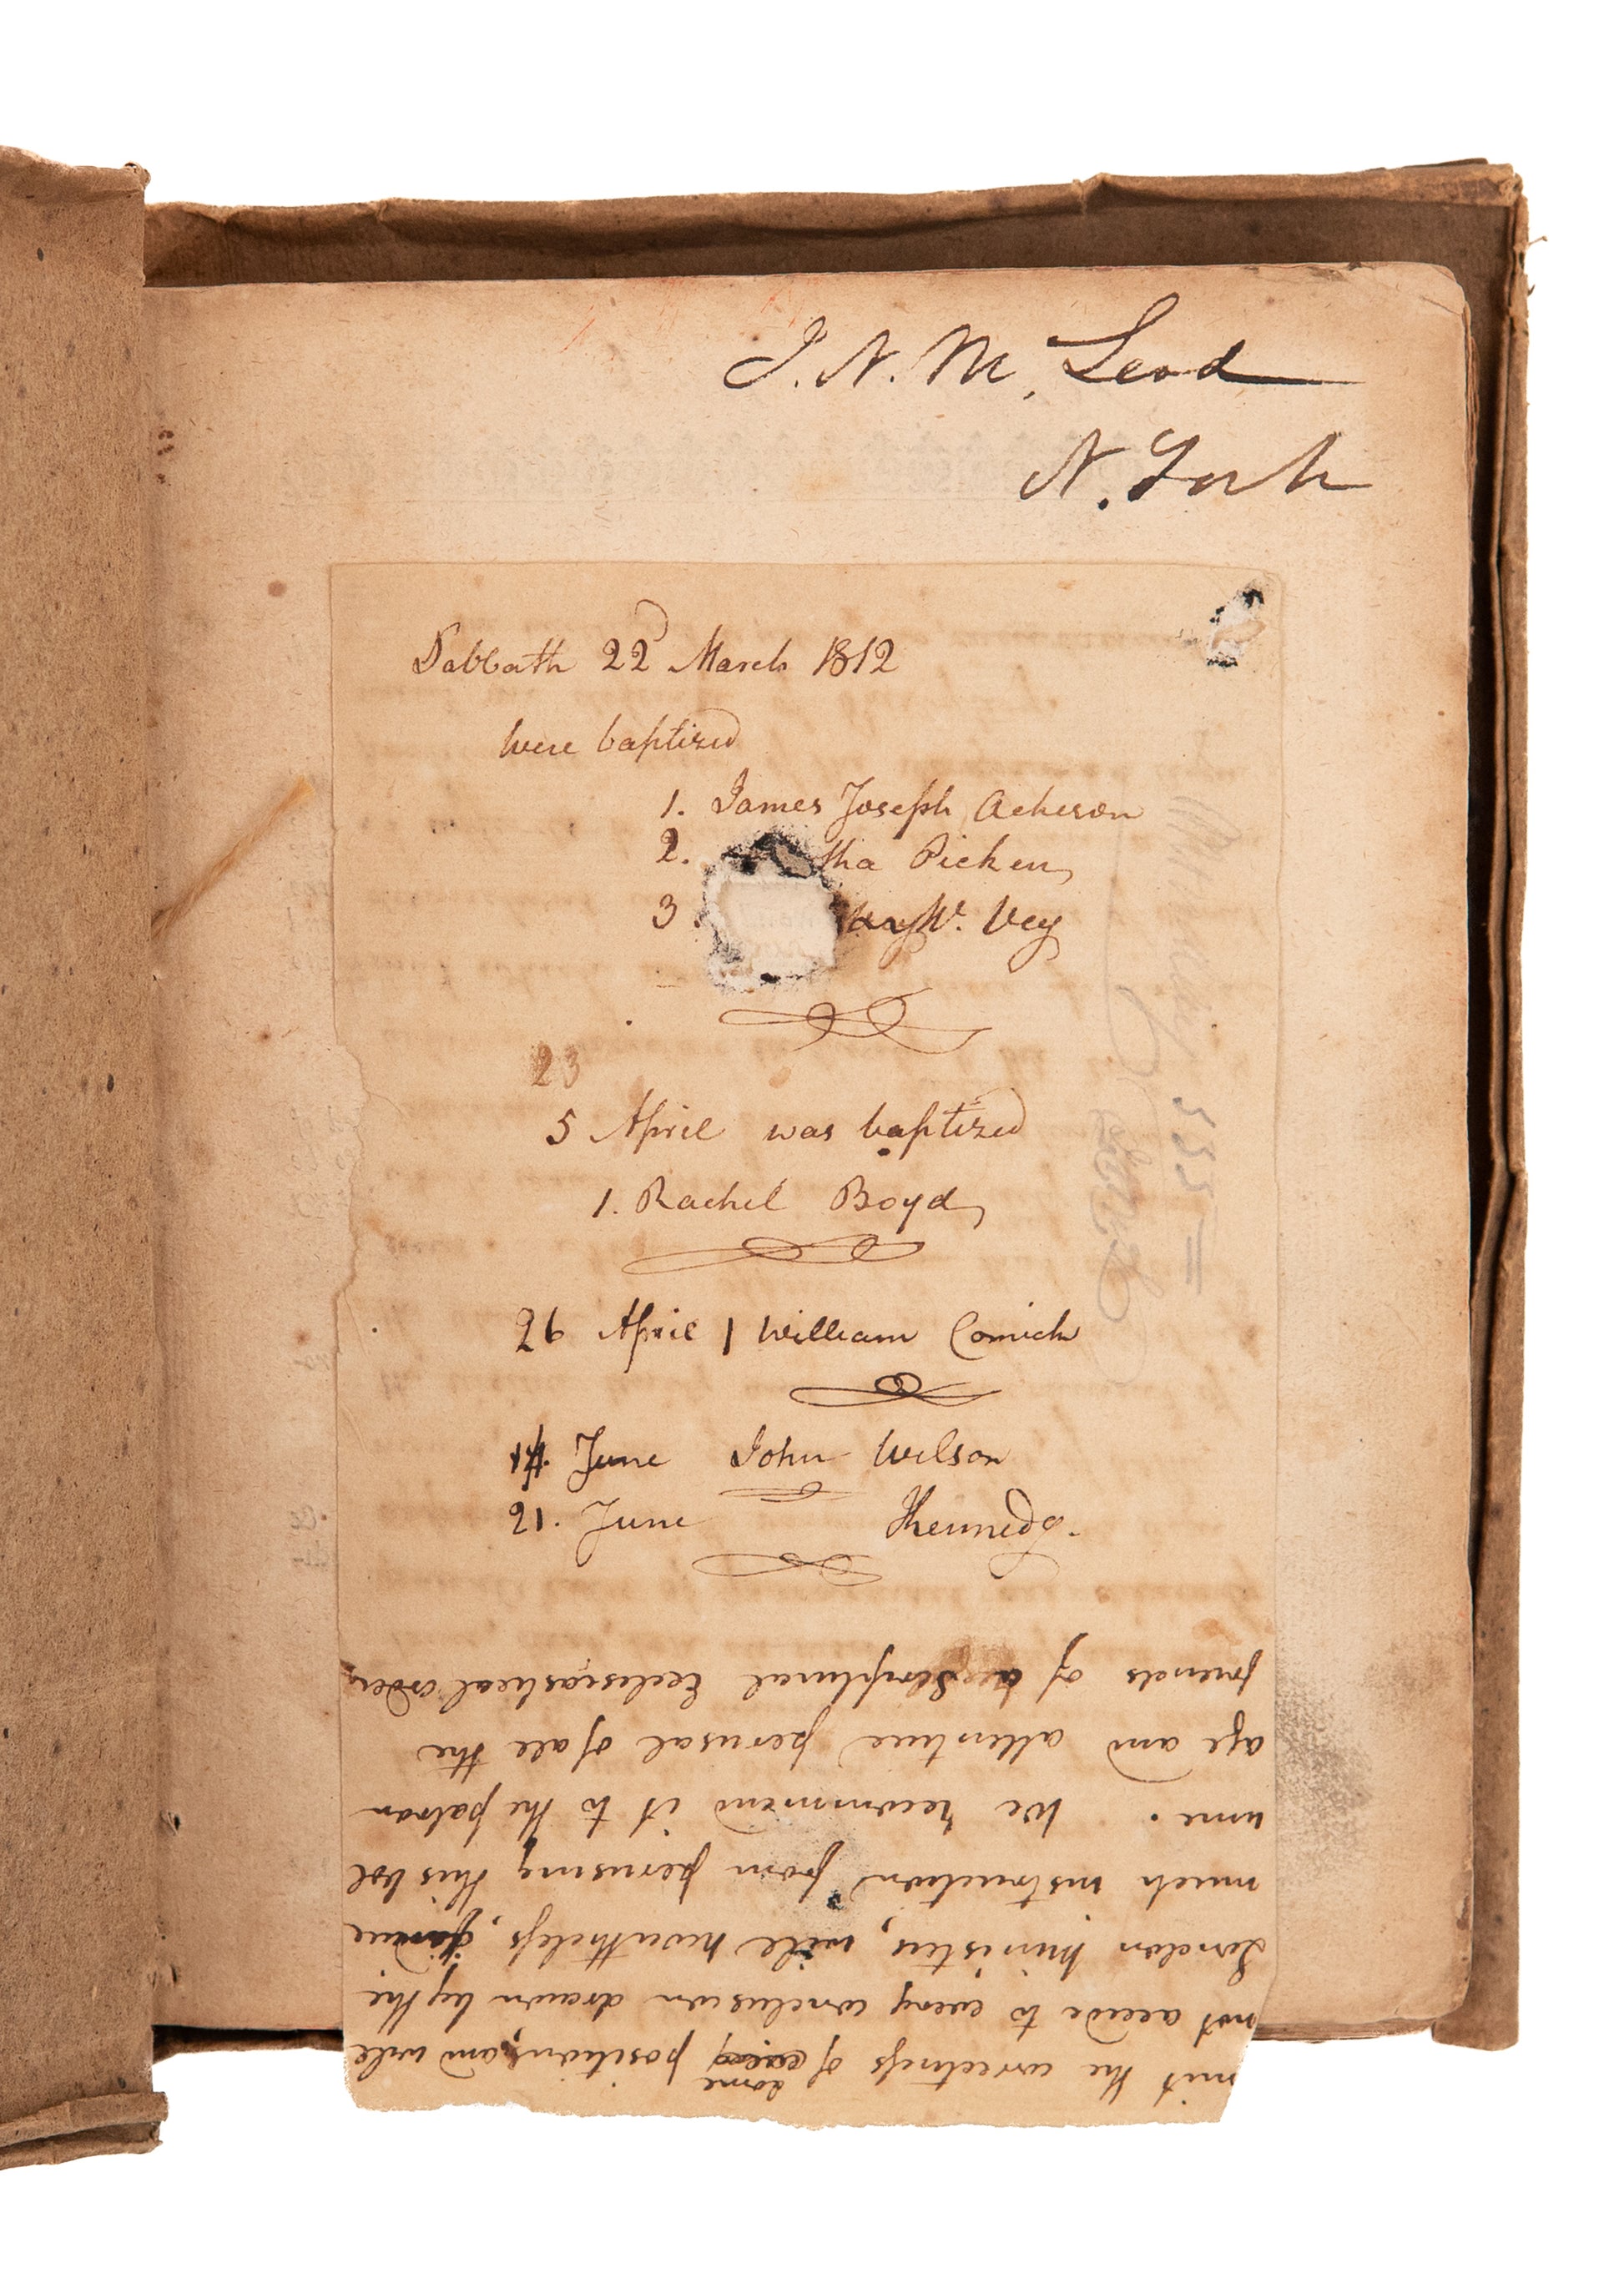 J. N. M. Leod
N. York
Sabbath 22d March 1812
were baptized
1. James Joseph Acheson
2. tha Picken
3. W. Vey
23
5 April was baptized
1. Rachel Boyd
26 April 1 William Comick
14. June John Wilson
21. June Kennedy.
mit the correctness of some positions, and will
not accede to every conclusion drawn by the
London Minister, will nevertheless, derive
much instruction from perusing this vol
ume. We recommend it to the patron
age and attentive perusal of all the
friends of Scriptural Ecclesiastical order